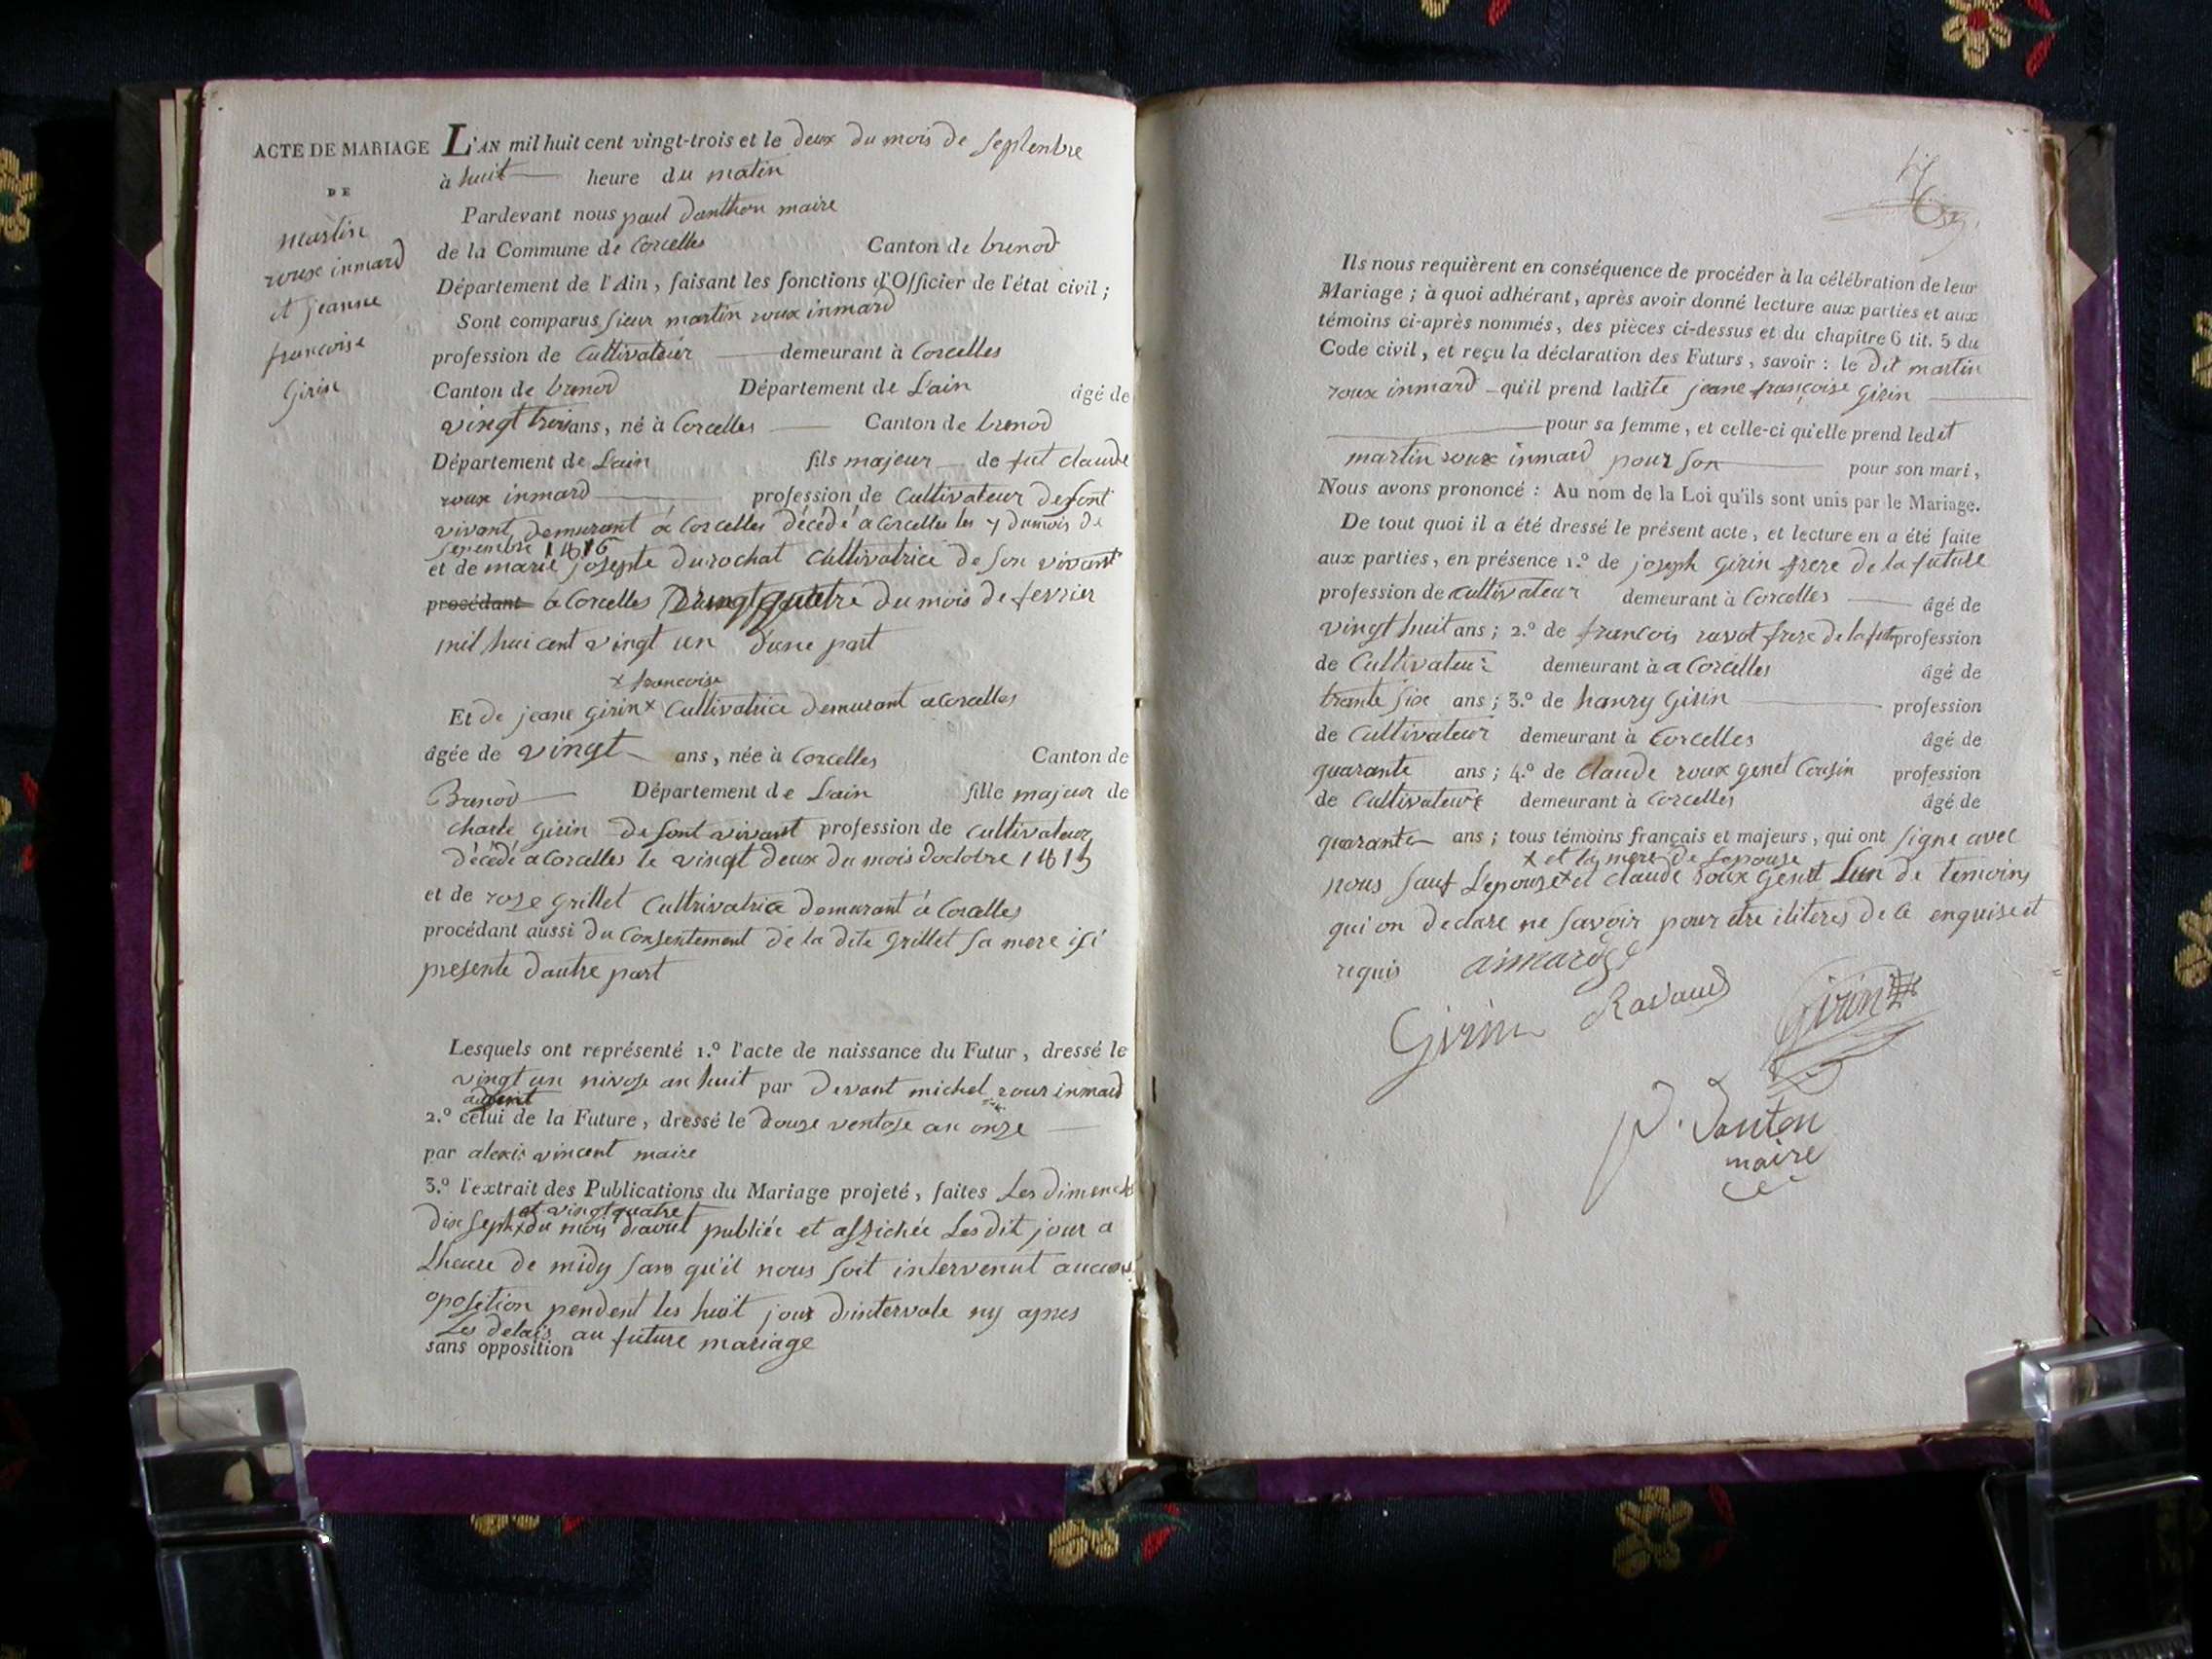 ACTE DE MARIAGE
DE
martin
roux inmard
et jeanne
francoise
Girin
L'AN mil huit cent vingt-trois et le deux du mois de septembre
à huit heure du matin
Pardevant nous paul danthon maire
de la Commune de Corcelles Canton de brenod
Département de l'Ain, faisant les fonctions d'Officier de l'état civil ;
Sont comparus sieur martin roux inmard
profession de Cultivateur demeurant à Corcelles
Canton de brenod Département de L'ain âgé de
vingt trois ans, né à Corcelles Canton de brenod
Département de L'ain fils majeur de fut claude
roux inmard profession de Cultivateur de sont
vivant demurant à Corcelles décédé a Corcelles les 7 du mois de
1816
et de marie josepte durochat Cultivatrice de son vivant
procédant a Corcelles quattre du mois de fevrier
mil hui cent vingt un d'une part
x francoise
Et de jeane Girin x Cultivatrice demurant a Corcelles
âgée de vingt ans, née à Corcelles Canton de
Brenod Département de L'ain fille majeur de
charle Girin de sont vivant profession de Cultivateur
décédé a Corcelles le vingt deux du mois doctobre 1815
et de roze Grillet Cultrivatrice demurant à Corcelles
procédant aussi du Consentement de la dite Grillet sa mere isi
presente dautre part
Lesquels ont représenté 1.º l'acte de naissance du Futur, dressé le
vingt un nivose an huit par devant michel roux inmard
2.º celui de la Future, dressé le douze ventose an onze
par alexis vincent maire
3.º l'extrait des Publications du Mariage projeté, faites Les dimenche
et vingt quatre
dix sept x du mois daout publiée et affichée Les dit jour a
Lheure de midy sans qu'il nous soit intervenut aucune
oposition pendent les huit jour dintervale ny apres
Les delais au future mariage
sans opposition
Ils nous requièrent en conséquence de procéder à la célébration de leur
Mariage ; à quoi adhérant, après avoir donné lecture aux parties et aux
témoins ci-après nommés, des pièces ci-dessus et du chapitre 6 tit. 5 du
Code civil, et reçu la déclaration des Futurs, savoir : le dit martin
roux inmard qu'il prend ladite jeane françoise Girin
pour sa femme, et celle-ci qu'elle prend ledit
martin roux inmard pour son pour son mari,
Nous avons prononcé : Au nom de la Loi qu'ils sont unis par le Mariage.
De tout quoi il a été dressé le présent acte, et lecture en a été faite
aux parties, en présence 1.º de joseph Girin frere de la future
profession de cultivateur demeurant à Corcelles âgé de
vingt huit ans ; 2.º de francois ravot frere de la profession
de Cultivateur demeurant à a Corcelles âgé de
trante six ans ; 3.º de hanry Girin profession
de Cultivateur demeurant à Corcelles âgé de
quarante ans ; 4.º de claude roux genel Cousin profession
de Cultivateur demeurant à Corcelles âgé de
quarante ans ; tous témoins français et majeurs, qui ont signe avec
x et la mere de Lepouse
nous sauf L'epouse x et claude roux Genel Lun de temoins
qui on declare ne savoir pour etre iliteres de ce enquise et
requis aimard
Girin Ravaud Girin
P. Danton
maire